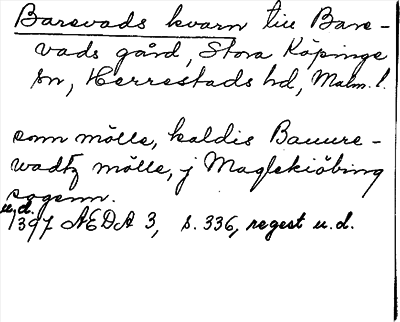 Barevads kvarn till Bare-
vads gård, Stora Köpinge
sn, Herrestads hd, Malm. l.
som mölle, kaldis Bauure-
wadtz mölle, j Maglekiöbing
sogenn.
u.d.
1397 AEDA 3, s. 336, regest u.d.